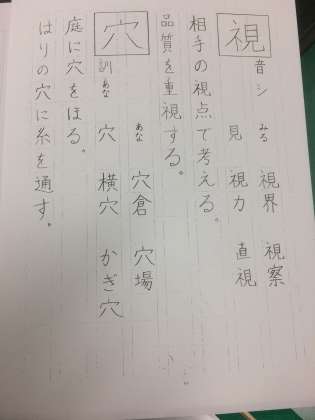 視
音シ みる 視界 視察
見 視力 直視
相手の視点で考える。
品質を重視する。
穴
あな 穴倉 穴場
訓あな 穴 横穴 かぎ穴
庭に穴をほる。
はりの穴に糸を通す。